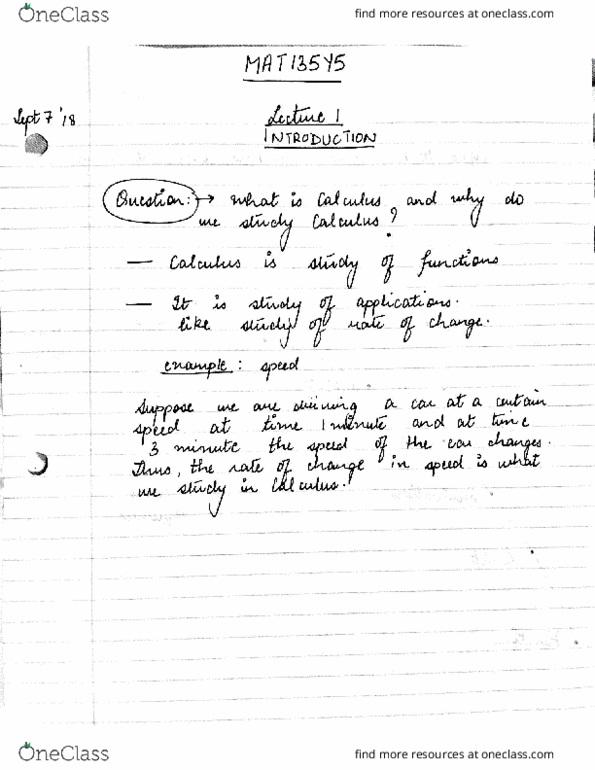 OneClass
find more resources at oneclass.com
MAT135Y5
Sept 7 '18
Lecture 1
INTRODUCTION
Question: → What is Calculus and why do
we study Calculus?
— Calculus is study of functions
— It is study of applications.
like study of rate of change.
example: speed
Suppose we are driving a car at a certain
speed at time 1 minute and at time
3 minute the speed of the car changes.
Thus, the rate of change in speed is what
we study in Calculus.
OneClass
find more resources at oneclass.com